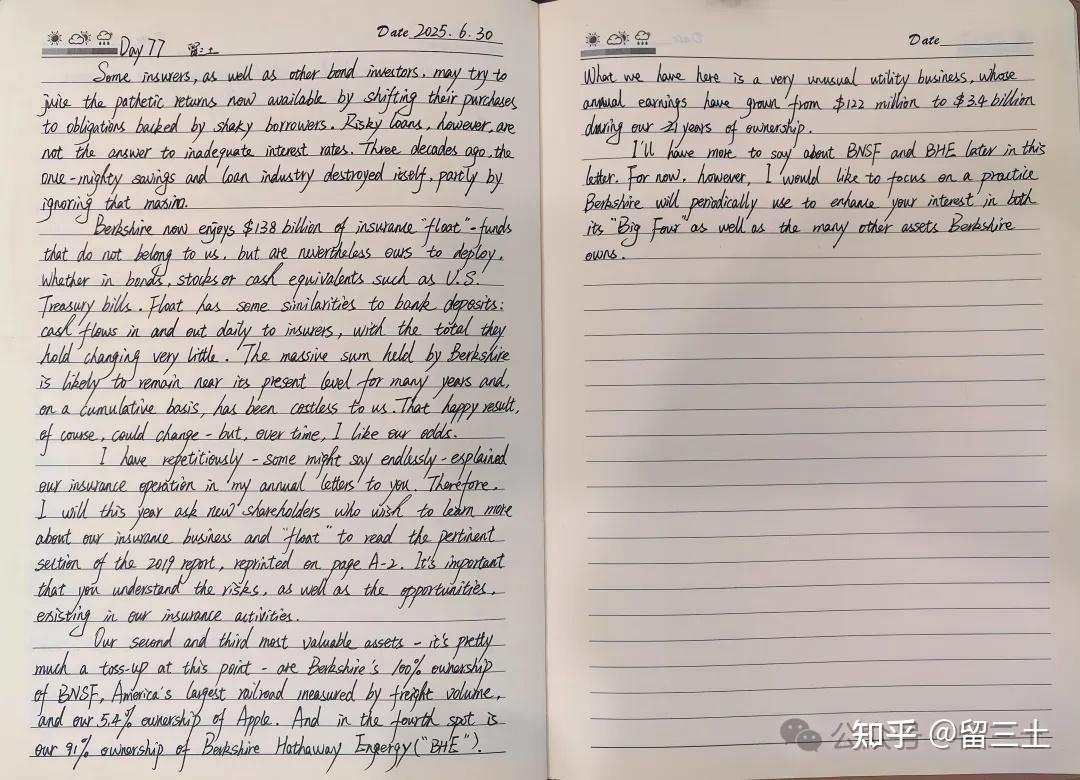 Day 77
Date 2025. 6. 30
Some insurers, as well as other bond investors, may try to
juice the pathetic returns now available by shifting their purchases
to obligations backed by shaky borrowers. Risky loans, however, are
not the answer to inadequate interest rates. Three decades ago, the
one-mighty savings and loan industry destroyed itself, partly by
ignoring that maxim.
Berkshire now enjoys $138 billion of insurance "float"-funds
that do not belong to us, but are nevertheless ours to deploy,
whether in bonds, stocks or cash equivalents such as U.S.
Treasury bills. Float has some similarities to bank deposits:
cash flows in and out daily to insurers, with the total they
hold changing very little. The massive sum held by Berkshire
is likely to remain near its present level for many years and,
on a cumulative basis, has been costless to us. That happy result,
of course, could change - but, over time, I like our odds.
I have repetitiously - some might say endlessly - explained
our insurance operation in my annual letters to you. Therefore,
I will this year ask new shareholders who wish to learn more
about our insurance business and "float" to read the pertinent
section of the 2019 report, reprinted on page A-2. It's important
that you understand the risks, as well as the opportunities,
existing in our insurance activities.
Our second and third most valuable assets - it's pretty
much a toss-up at this point - are Berkshire's 100% ownership
of BNSF, America's largest railroad measured by freight volume,
and our 5.4% ownership of Apple. And in the fourth spot is
our 91% ownership of Berkshire Hathaway Engergy ("BHE").
Date
What we have here is a very unusual utility business, whose
annual earnings have grown from $122 million to $3.4 billion
during our 21 years of ownership.
I'll have more to say about BNSF and BHE later in this
letter. For now, however, I would like to focus on a practice
Berkshire will periodically use to enhance your interest in both
its "Big Four" as well as the many other assets Berkshire
owns.
知乎 @留三土